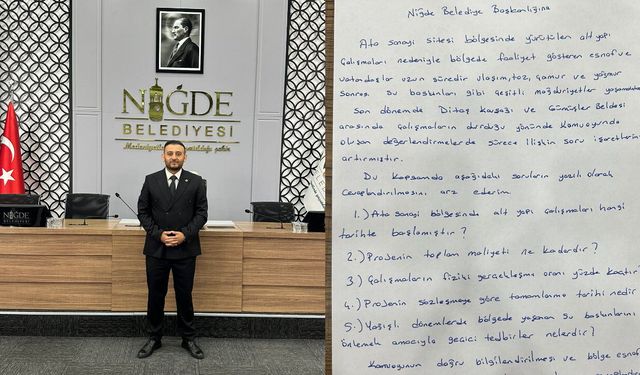 NİĞDE
BELEDİYESİ
NİĞDE
BELEDİYESİ
Niğde Belediye Başkanlığına
Ata sanayi sitesi bölgesinde yürütülen alt yapı
Çalışmaları nedeniyle bölgede faaliyet gösteren esnaf ve
vatandaşlar uzun süredir ulaşım, toz, çamur ve yağmur
sonrası su baskınları gibi çeşitli mağduriyetler yaşamakta
Son dönemde Ditaş kavşağı ve Gümüşler Beldesi
arasında çalışmaların durduğu yönünde kamuoyunda
oluşan değerlendirmelerde sürece ilişkin soru işaretlerini
artırmıştır.
Bu kapsamda aşağıdaki soruların yazılı olarak
Cevaplandırılmasını arz ederim.
1.) Ata sanayi bölgesinde alt yapı çalışmaları hangi
tarihte başlamıştır?
2.) Projenin toplam maliyeti ne kadardır?
3.) Çalışmaların fiziki gerçekleşme oranı yüzde kaçtır?
4.) Projenin sözleşmeye göre tamamlanma tarihi nedir
5.) Yağışlı dönemlerde bölgede yaşanan su baskınlarını
önlemek amacıyla geçici tedbirler nelerdir?
Kamuoyunun doğru bilgilendirilmesi ve bölge esnaf